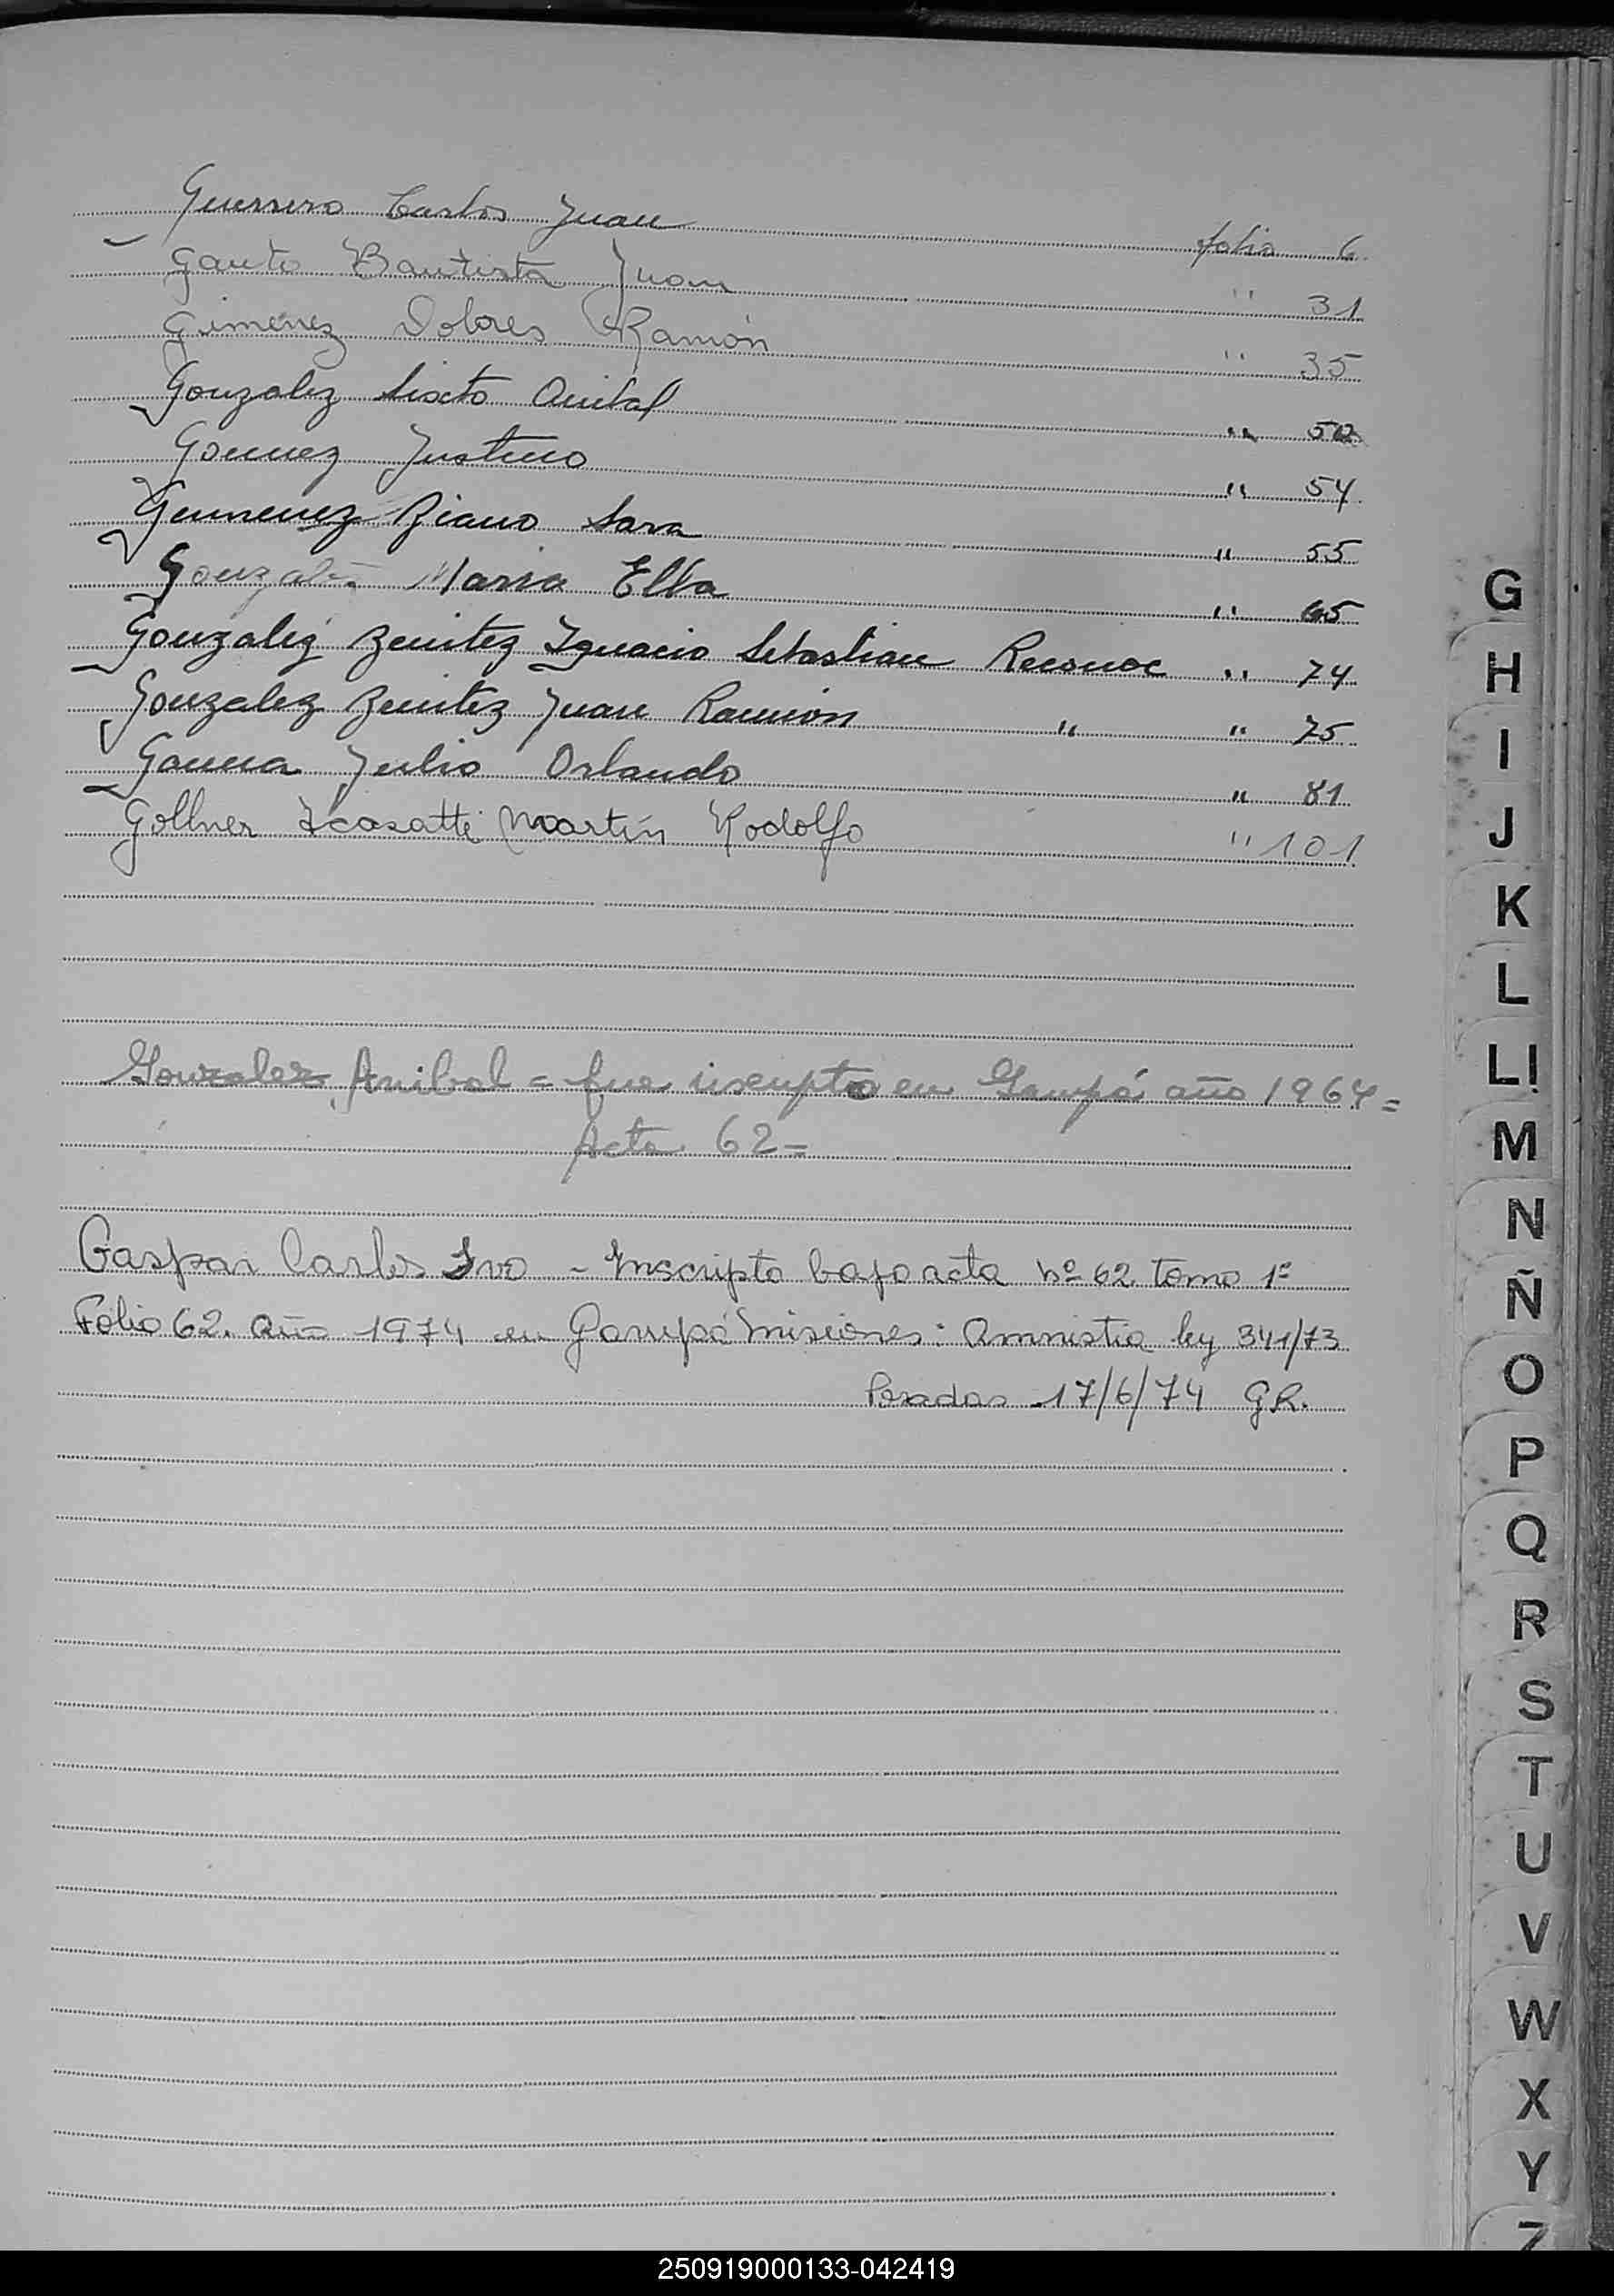 Guerrero Carlos Juan folio 6
Gauto Bautista Juan " 31
Gimenez Dolores Ramón " 35
Gonzalez Sixto Anibal " 50
Gomez Justino " 54
Gimenez Sara " 55
Gonzalez Maria Elba " 65
Gonzalez Benitez Ignacio Sebastian Reconoc " 74
Gonzalez Benitez Juan Ramión " " 75
Gauna Julio Orlando " 81
Gollner Icasatti Martín Rodolfo " 101
Gonzalez, Anibal = fue inscripto en Garupá año 1964 =
Acta 62 =
Gaspar Carlos Ivo - Inscripto bajo acta nº 62 Tomo 1º
Folio 62. año 1974 en Garupá Misiones: Amnistia ley 341/73
Posadas 17/6/74 G.R.
G
H
I
J
K
L
LL
M
N
Ñ
O
P
Q
R
S
T
U
V
W
X
Y
Z
250919000133-042419